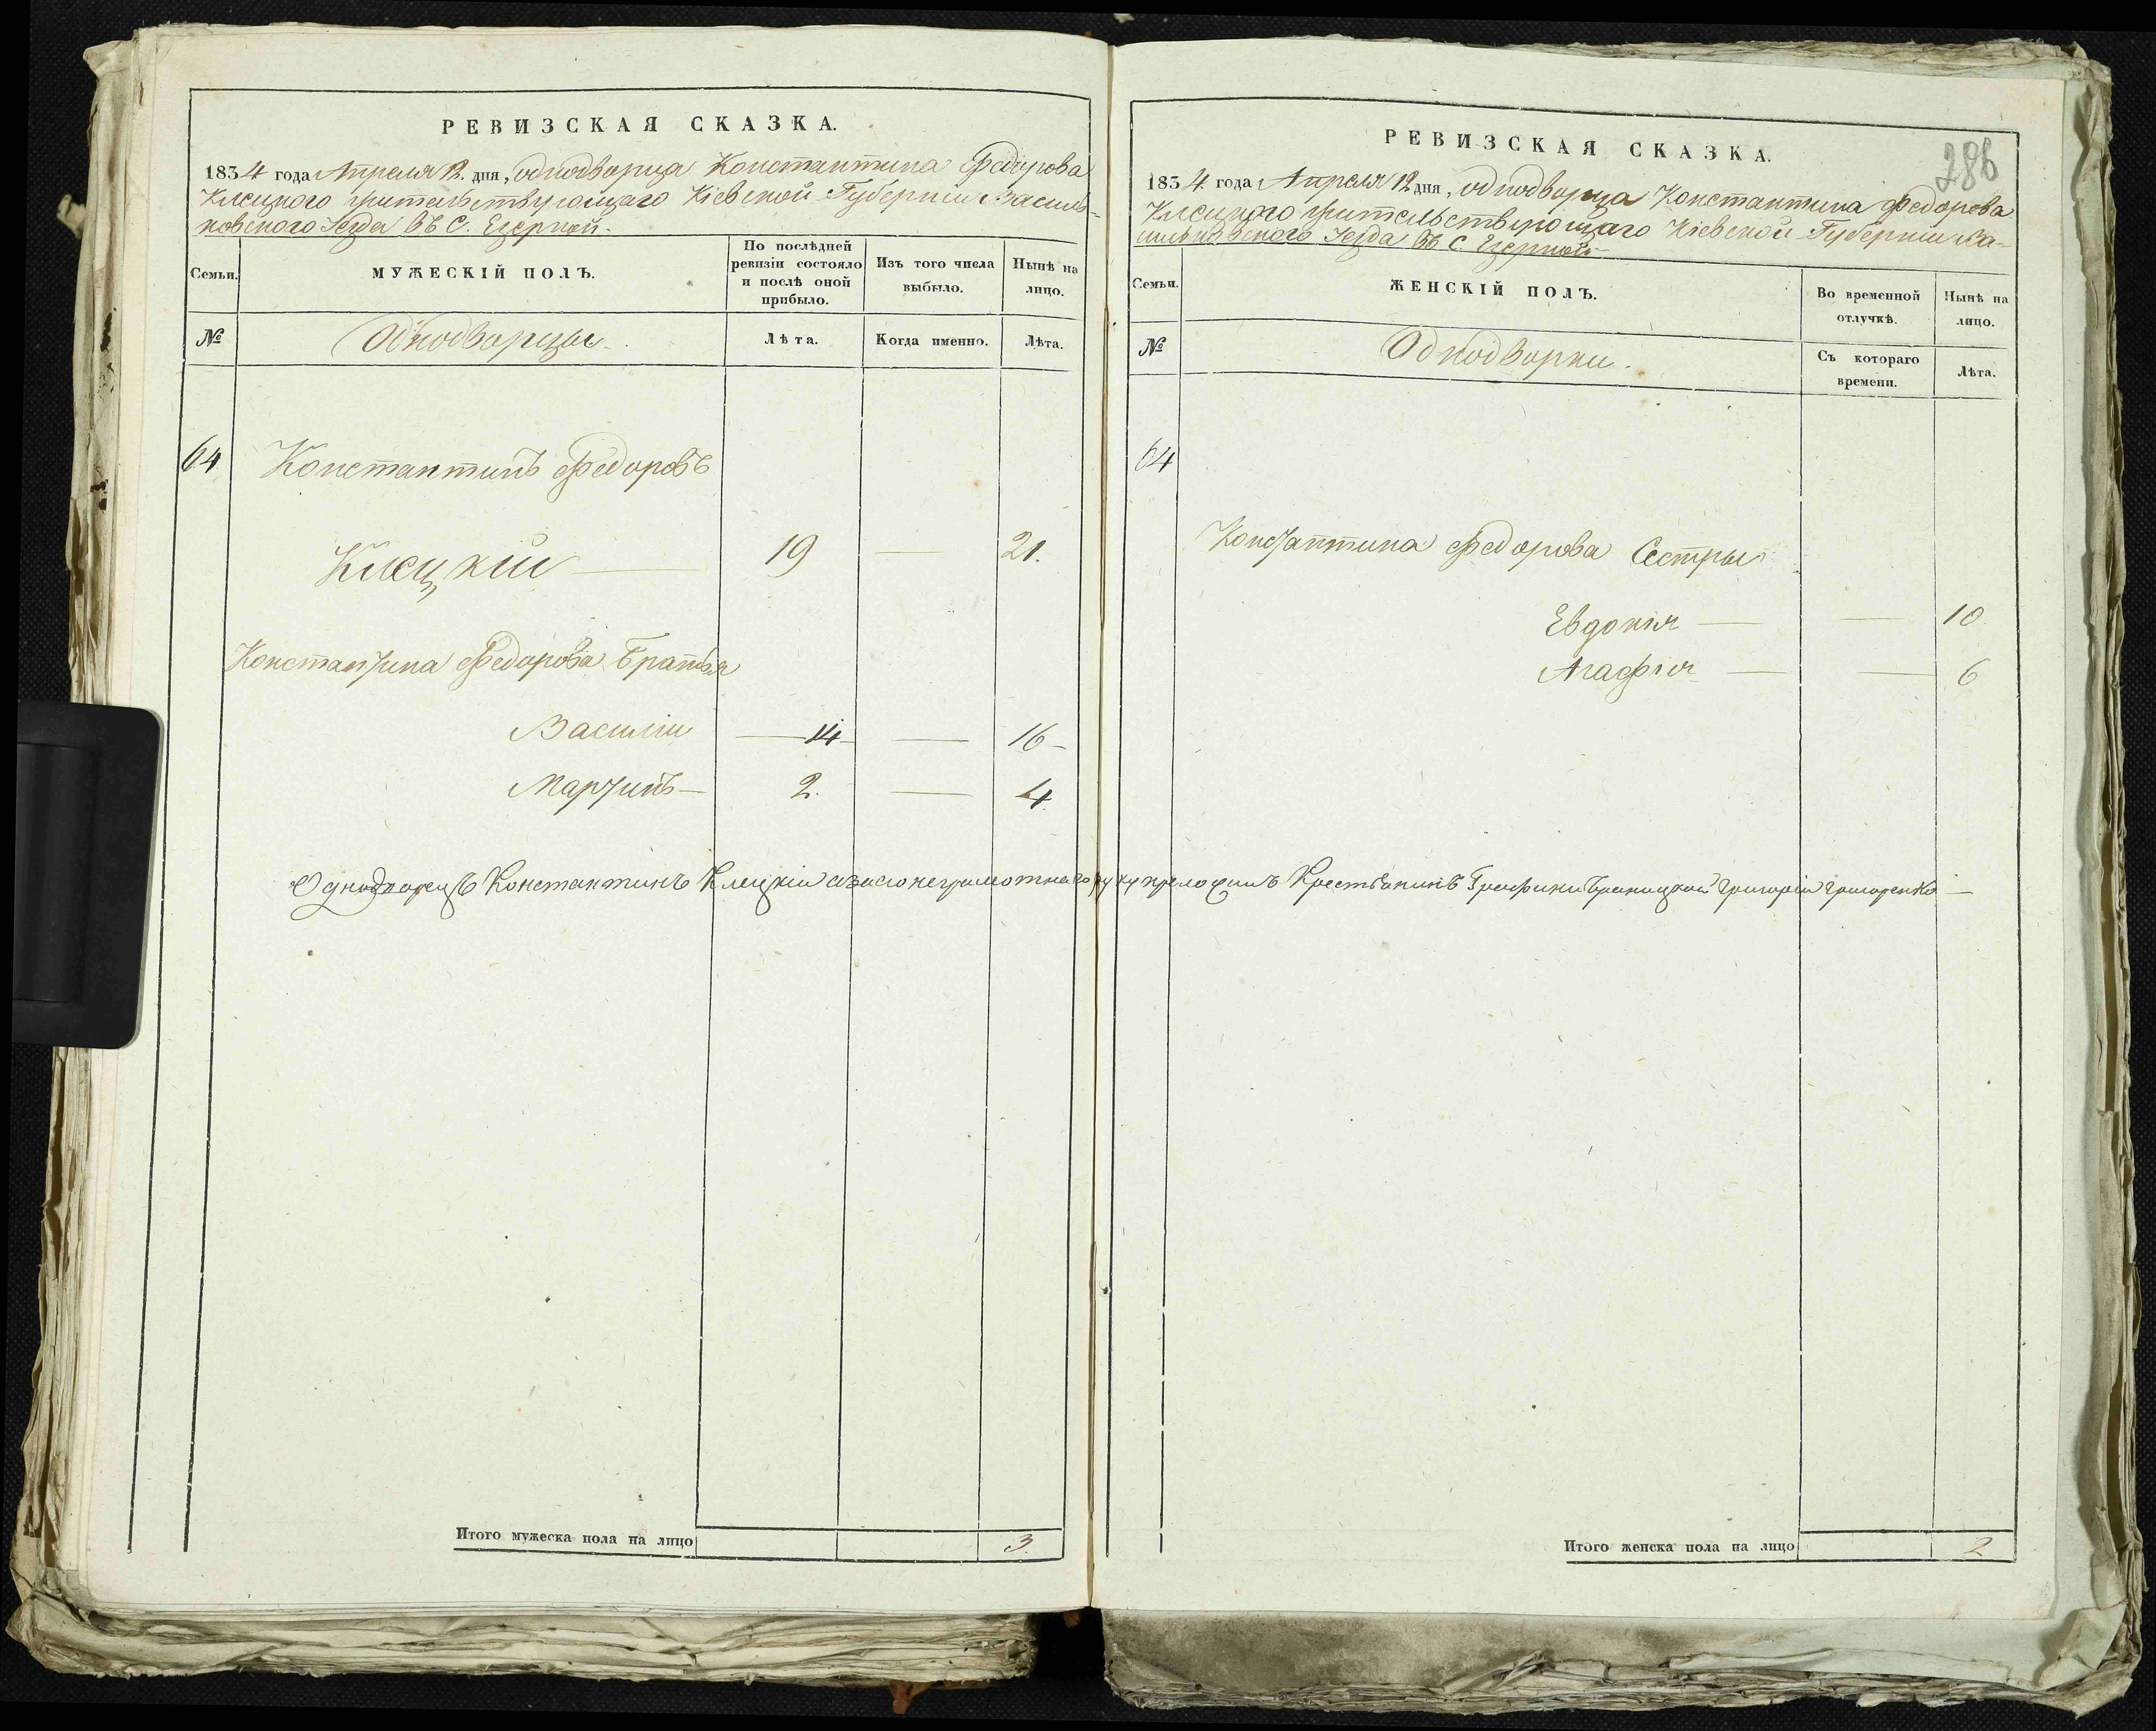 РЕВИЗСКАЯ СКАЗКА.
1834 года Апреля 12 дня, однодворца Константина Федорова
Клецкого жительствующаго Кіевской Губерніи Василь-
ковского Уезда въ С. Езерной.
Семьи.
МУЖЕСКІЙ ПОЛЪ.
По послѣдней ревизіи состояло и послѣ оной прибыло.
Изъ того числа выбыло.
Нынѣ на лицо.
№
Однодворцы
Лѣта.
Когда именно.
Лѣта.
64 Константинъ Федоровъ
Клецкій — 19 — 21.
Константина Федорова братья
Василій — 14 — 16 -
Мартинъ — 2. — 4.
Однодворецъ Константинъ Клецкій а за его неграмотного руку приложилъ Крестьянинъ Графини Браницкой Григорій Григоренко —
Итого мужеска пола на лицо 3.
286
РЕВИЗСКАЯ СКАЗКА.
1834 года Апреля 12 дня, однодворца Константина Федорова
Клецкого жительствующаго Кіевской Губерніи Ва-
сильковского Уезда въ С. Езерной
Семьи.
ЖЕНСКІЙ ПОЛЪ.
Во временной отлучкѣ.
Нынѣ на лицо.
№
Однодворки.
Съ котораго времени.
Лѣта.
64
Константина Федорова Сестры
Евдокія — — 10
Агафія — — 6
Итого женска пола на лицо 2